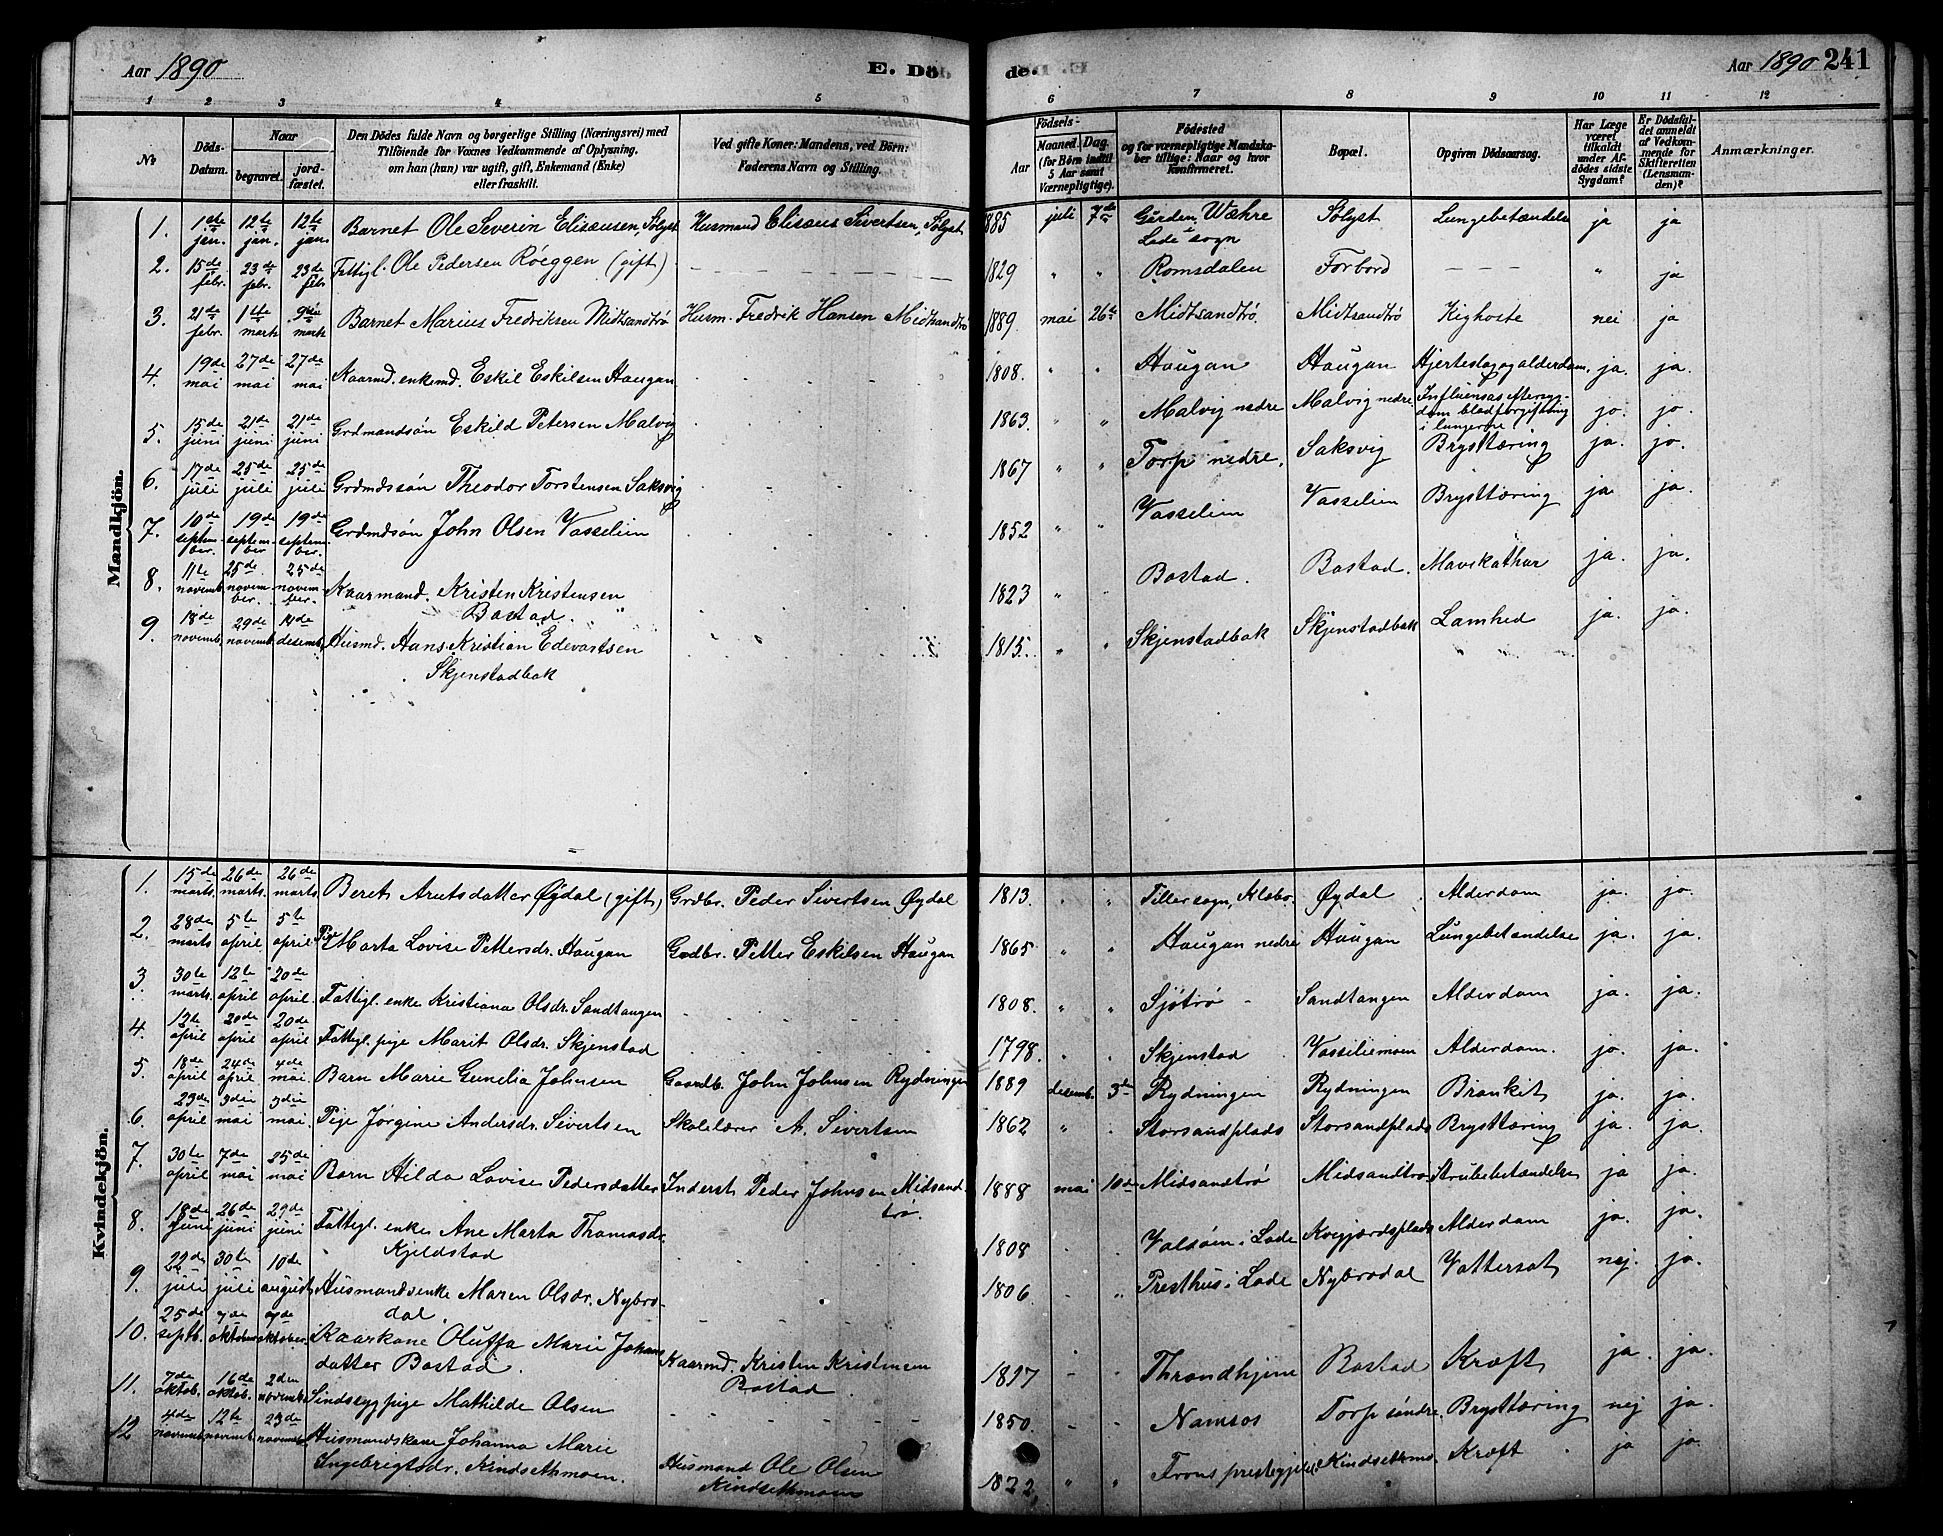 Aar 1890
E. Dö
de.
Aar 1890 241
1 2 3 4 5 6 7 8 9 10 11 12
No
Döds-Datum.
Naar
begravet.
jord-fæstet.
Den Dödes fulde Navn og borgerlige Stilling (Næringsvei) med
Tilföiende for Voxnes Vedkommende af Oplysning,
om han (hun) var ugift, gift, Enkemand (Enke)
eller fraskilt.
Ved gifte Koner: Mandens, ved Börn:
Faderens Navn og Stilling.
Födsels-
Aar
Maaned. Dag
(for Börn indtil
5 Aar samt
Værnepligtige).
Födested
og for værnepligtige Mandska-
ber tillige: Naar og hvor
konfirmeret.
Bopæl.
Opgiven Dödsaarsag.
Har Læge
været
tilkaldt
under Af-
dödes sidste
Sygdom?
Er Dödsfal-
det anmeldt
af Vedkom-
mende for
Skifteretten
(Lensman-
den)?
Anmærkninger.
Mandkjön.
1. 1ste jan. 12te jan. 12te jan. Barnet Ole Severin Elisæusen, Solyst Husmand Elisæus Sivertsen, Solyst 1885 juli 7de Gården Wæhre Lade sogn Solyst Lungebetændelse ja ja
2. 15de febr. 23de febr. 23de febr. Fattigl. Ole Pedersen Röeggen (gift) 1829 " " Romsdalen Forbord " ja
3. 21de febr. 1ste mark 9de mark Barnet Marius Fredriksen Midtsandtrö Husm. Fredrik Hansen Midtsandtrö 1889. mai 26de Midtsandtrö. Midtsandtrö Kighoste nei ja
4. 19de mai 27de mai 27de mai Kaarmd. enkemd. Eskil Eskilsen Haugan 1808. " " Haugan Haugan Hjerteslag og alderdom. ja. ja.
5. 15de juni 21de juni 21de juni Grdmandsön Eskild Petersen Malvig 1863. " " Malvig nedre Malvig nedre Influensas eftersyg-
dom blodforgiftning
i lungerne ja. ja.
6. 17de juli 25de juli 25de juli Grdmdssön Theodor Torstensen Saksvig 1867 " " Torp nedre. Saksvig Brysttæring ja. ja.
7. 10de september. 19de september 19de september. Grdmdsön John Olsen Vasselien 1852 " " Vasselien Vasselien Brysttæring ja ja.
8. 11te novemb. 25de november. 25de november. Kaarmand. Kristen Kristensen
Bostad. 1823 " Bostad. Bostad. Mavekathar ja. ja.
9. 18de novemb. 29de novemb. 14de desemb. Husmd. Hans Kristian Edevartsen
Skjenstadbak 1815. " " Skjenstadbak Skjenstadbak Lamhed ja. ja.
Kvindekjön.
1. 15de marts 26de marts. 26de marts Beret Arntsdatter Øydal (gift) Grdbr. Peder Sivertsen Øydal 1813. " " Tiller sogn, Klæbo. Øydal Alderdom ja. ja.
2. 28de marts 5te april 5te april Pge Marta Lovise Pettersdr. Haugan Grdbr. Petter Eskilsen Haugan 1865 " " Haugan nedre Haugan Lungebetændelse ja. ja.
3. 30te marts. 12te april 20de april. Fattigl. enke Kristiana Olsdr. Sandtangen 1808. " " Sjötrö Sandtangen Alderdom ja. ja.
4. 12te april 20de april 20de april. Fattigl. pige Marit Olsdr. Skjenstad 1798. " " Skjenstad Vasseliemoen Alderdom. ja. ja.
5. 18de april 24de april 4de mai. Barn Marie Gunelia Johnsen Gaardb. John Johnsen Rydningen 1889 desemb. 3de Rydningen Rydningen Bronkit ja. ja.
6. 23de april 3die mai 3die mai. Pige Jörgine Andersdr. Sivertsen Skolelærer A. Sivertsen 1862 " Storsandplads Storsandplads Brysttæring ja. ja.
7. 30te april 7de mai 25de mai Barn Hilda Lovise Pedersdatter Inderst Peder Johnsen Midsand-
trö. 1888 mai 10de Midsandtrö Midsandtrö Strubebetændelse ja ja.
8. 18de juni 26de juni 29de juni Fattigl. enke Ane Marta Thomasdr.
Kjeldstad 1808 Valsöen i Lade Kvigjærdsplads Alderdom ja. ja.
9. 22de juli 30te juli 10de august Husmandsenke Maren Olsdr. Nybro-
dal. 1806. " Presthus i Lade Nybrodal Vattersot nej. ja.
10. 25de septb. 7de oktober 7de oktober. Kaarkone Oluffa Marie Johans
datter Bostad. Kaarmd. Kristen Kristensen
Bostad 1827 Throndhjem Bostad Kræft ja. ja.
11. 7de oktob. 16de oktob. 2den novemb. Sindssyg pige Mathilde Olsen 1850. Namsos Torp söndre. Brysttæring nej ja.
12 4de novemb. 12te novemb. 23de novemb. Husmandskone Johanna Marie
Ingebrigtsdr. Kindsethmoen. Husmand Ole Olsen
Kindsethmoen 1822 " " Kindsethmo. Kræft ja ja.